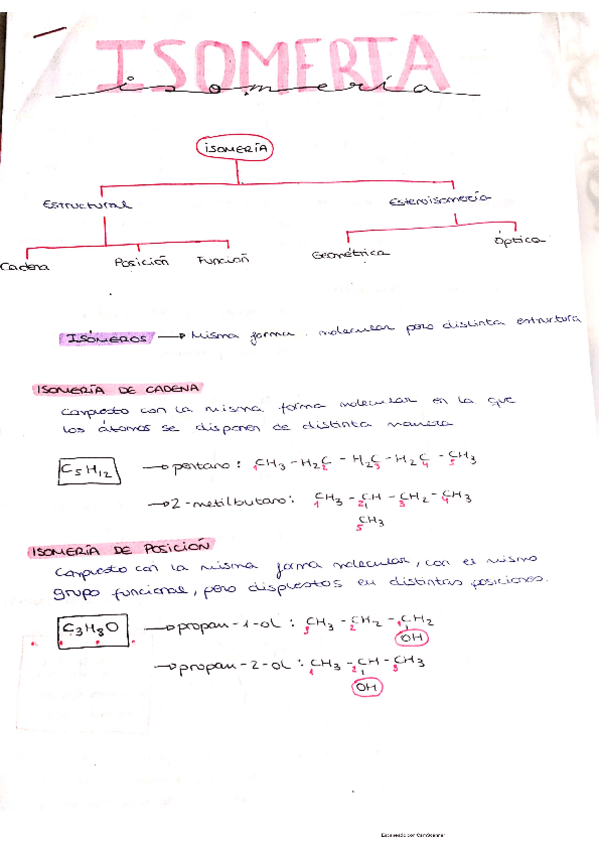 ISOMERIA
isomería
ISOMERÍA
Estructural
Estereoisomería
Cadena
Posición
Función
Geométrica
Óptica
ISÓMEROS → Misma forma molecular pero distinta estructura
ISOMERÍA DE CADENA
Compuesto con la misma forma molecular en la que
los átomos se disponen de distinta manera
C5H12 → pentano: CH3 - H2C - H2C - H2C - CH3
1 2 3 4 5
→ 2-metilbutano: CH3 - CH - CH2 - CH3
1 2 3 4
CH3
5
ISOMERÍA DE POSICIÓN
Compuesto con la misma forma molecular, con el mismo
grupo funcional, pero dispuestos en distintas posiciones.
C3H8O → propan-1-ol: CH3 - CH2 - CH2
3 2 1
OH
→ propan-2-ol: CH3 - CH - CH3
1 2 3
OH
Escaneado con CamScanner